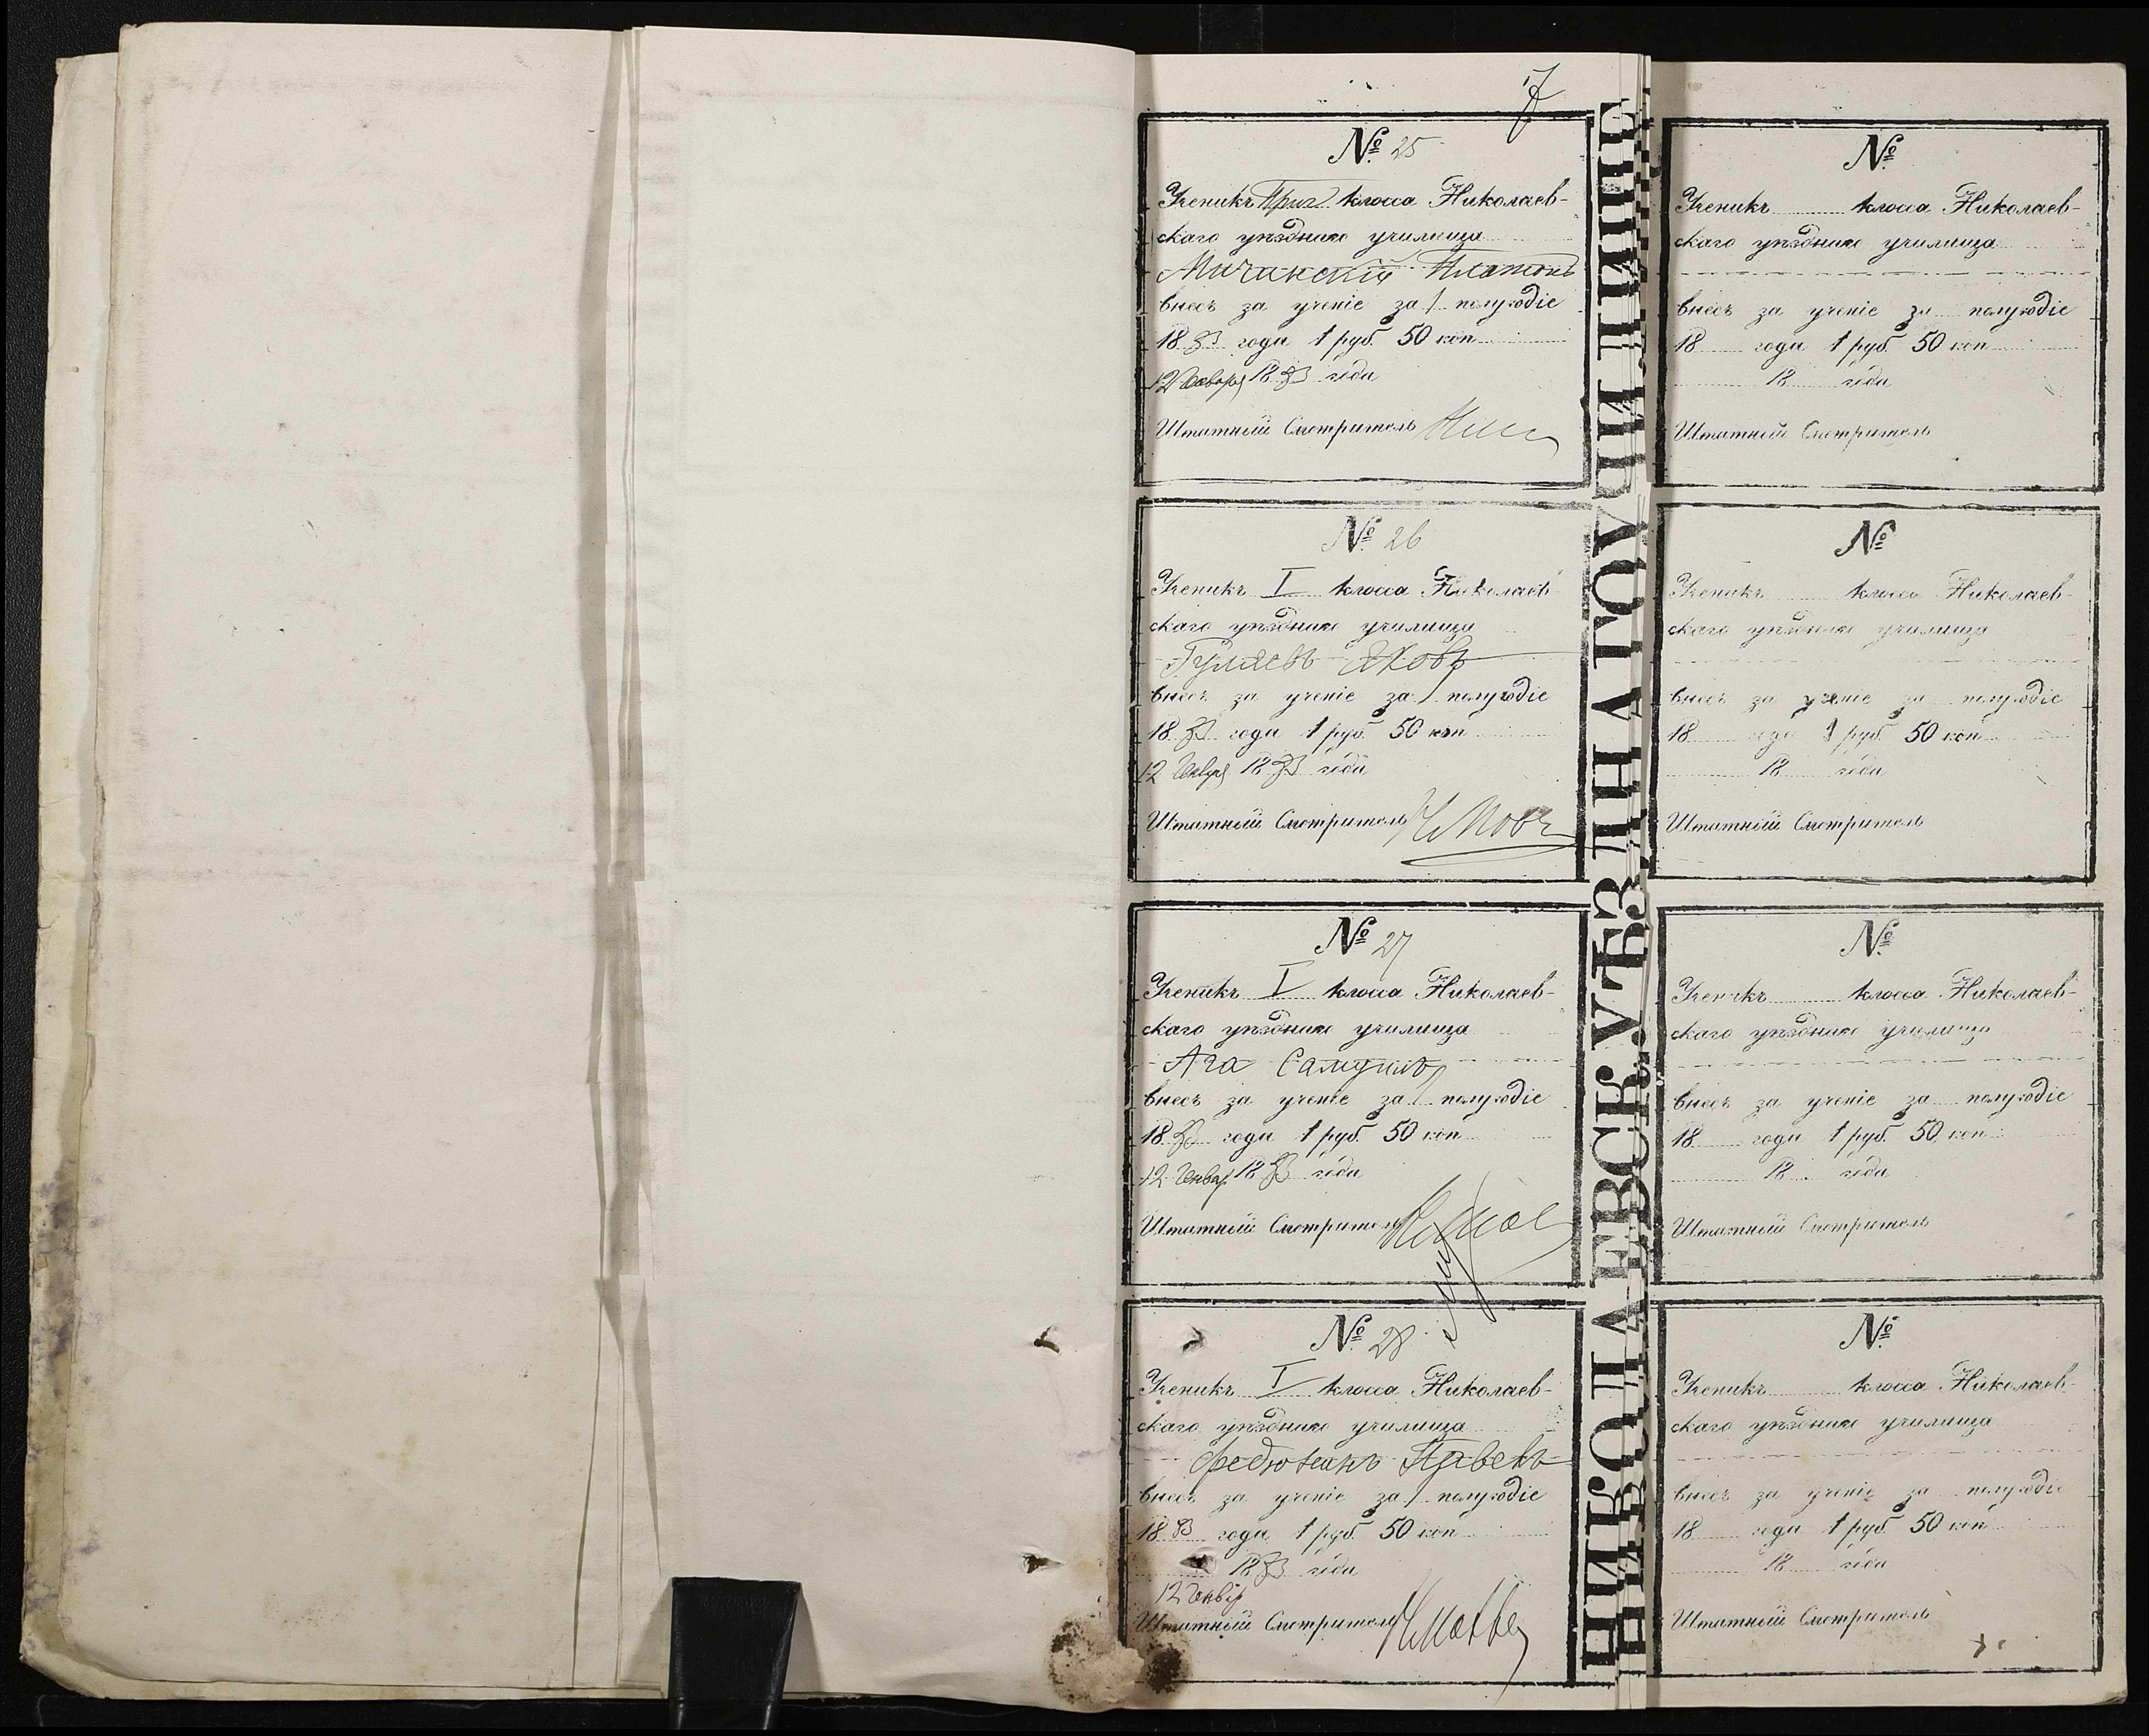 7
№ 25
Ученикъ Приг. класса Николаев-
скаго уѣзднаго училища
Мичинскій Платонъ
внесъ за ученіе за 1 полугодіе
1883 года 1 руб. 50 коп
12 Января 1883 года
Штатный Смотритель
№ 26
Ученикъ I класса Николаев-
скаго уѣзднаго училища
Гуляевъ Яковъ
внесъ за ученіе за 1 полугодіе
1883 года 1 руб. 50 коп
12 Январ 1883 года
Штатный Смотритель
№ 27
Ученикъ I класса Николаев-
скаго уѣзднаго училища
Ага Самуилъ
внесъ за ученіе за 1 полугодіе
1883 года 1 руб. 50 коп
12 Январ 1883 года
Штатный Смотритель
№ 28
Ученикъ I класса Николаев-
скаго уѣзднаго училища
Федюшинъ Павелъ
внесъ за ученіе за 1 полугодіе
1883 года 1 руб. 50 коп
1883 года
12 Январ
Штатный Смотритель
НИКОЛАЕВСК. УѢЗДНАГО УЧИЛИЩЕ
№
Ученикъ класса Николаев-
скаго уѣзднаго училища
внесъ за ученіе за полугодіе
18 года 1 руб. 50 коп
18 года
Штатный Смотритель
№
Ученикъ класса Николаев-
скаго уѣзднаго училища
внесъ за ученіе за полугодіе
18 года 1 руб. 50 коп
18 года
Штатный Смотритель
№
Ученикъ класса Николаев-
скаго уѣзднаго училища
внесъ за ученіе за полугодіе
18 года 1 руб. 50 коп
18 года
Штатный Смотритель
№
Ученикъ класса Николаев-
скаго уѣзднаго училища
внесъ за ученіе за полугодіе
18 года 1 руб. 50 коп
18 года
Штатный Смотритель